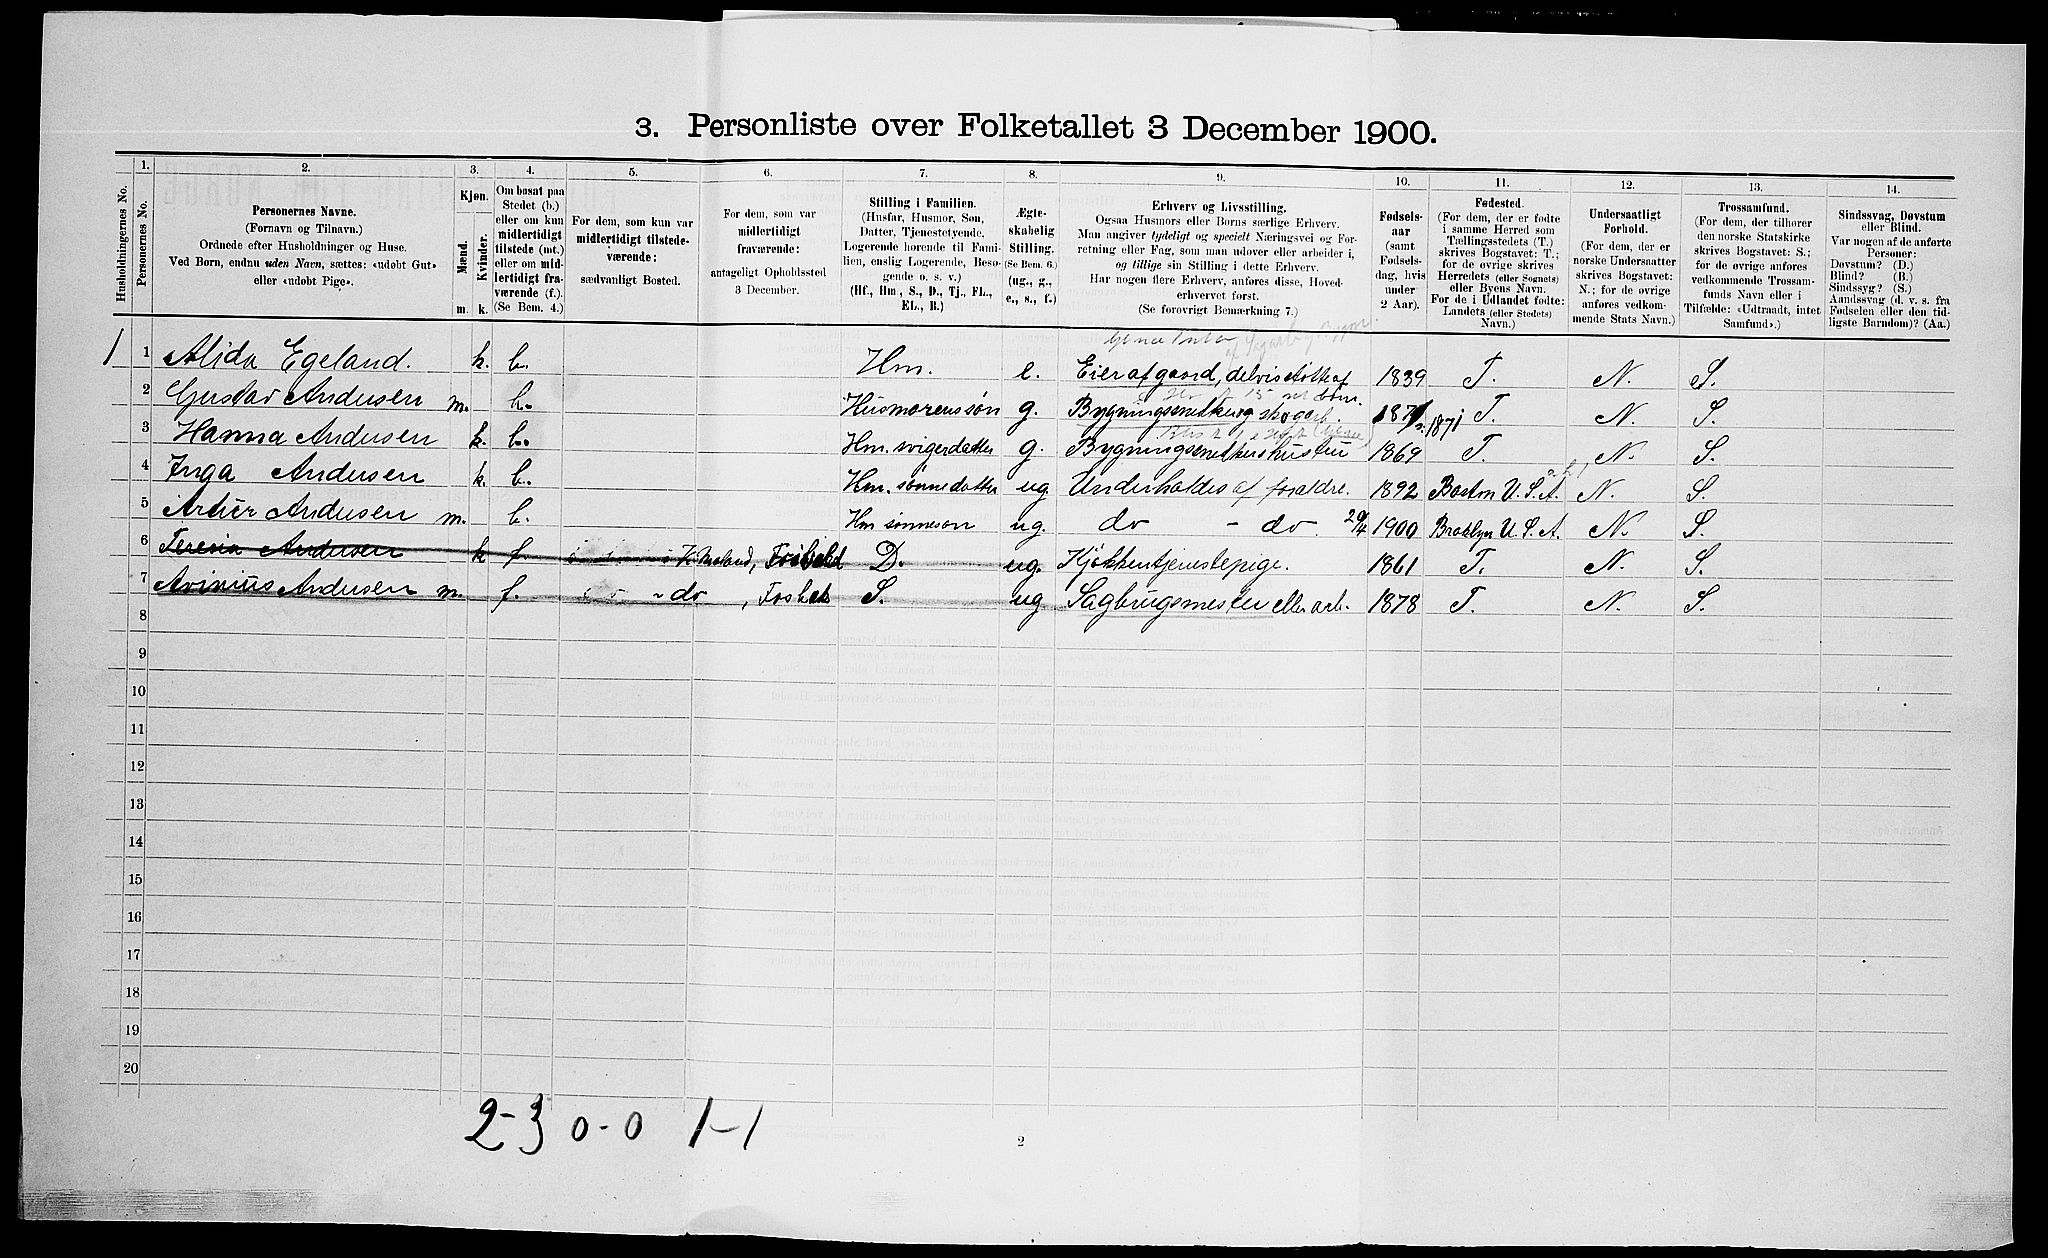 3. Personliste over Folketallet 3 December 1900.
Husholdningernes No.
1.
Personernes No.
2.
Personernes Navne.
(Fornavn og Tilnavn.)
Ordnede efter Husholdninger og Huse.
Ved Børn, endnu uden Navn, sættes: «udøbt Gut»
eller «udøbt Pige».
3.
Kjøn.
Mænd.
Kvinder.
m. k.
4.
Om bosat paa
Stedet (b.)
eller om kun
midlertidigt
tilstede (mt.)
eller om mid-
lertidigt fra-
værende (f.).
(Se Bem. 4.)
5.
For dem, som kun var
midlertidigt tilstede-
værende:
sædvanligt Bosted.
6.
For dem, som var
midlertidigt
fraværende:
antageligt Opholdssted
3 December.
7.
Stilling i Familien.
(Husfar, Husmor, Søn,
Datter, Tjenestetyende,
Logerende hørende til Fami-
lien, enslig Logerende, Besø-
gende o. s. v.)
(Hf., Hm., S., D., Tj., FL.,
EL., B.)
8.
Ægte-
skabelig
Stilling.
(Se Bem. 6.)
(ug., g.,
e., s., f.)
9.
Erhverv og Livsstilling.
Ogsaa Husmors eller Børns særlige Erhverv.
Man angiver tydeligt og specielt Næringsvei og For-
retning eller Fag, som man udøver eller arbeider i,
og tillige sin Stilling i dette Erhverv.
Har nogen flere Erhverv, anføres disse, Hoved-
erhvervet først.
(Se forøvrigt Bemærkning 7.)
10.
Fødsels-
aar
(samt
Fødsels-
dag, hvis
under
2 Aar).
11.
Fødested.
(For dem, der er fødte
i samme Herred som
Tællingsstedets (T.)
skrives Bogstavet: T.;
for de øvrige skrives
Herredets (eller Sognets)
eller Byens Navn.
For de i Udlandet fødte:
Landets (eller Stedets)
Navn.)
12.
Undersaatligt
Forhold.
(For dem, der er
norske Undersaatter
skrives Bogstavet:
N.; for de øvrige
anføres vedkom-
mende Stats Navn.)
13.
Trossamfund.
(For dem, der tilhører
den norske Statskirke
skrives Bogstavet: S.;
for de øvrige anføres
vedkommende Trossam-
funds Navn eller i
Tilfælde: «Udtraadt, intet
Samfund».)
14.
Sindssvag, Døvstum
eller Blind.
Var nogen af de anførte
Personer:
Døvstum? (D.)
Blind? (B.)
Sindssyg? (S.)
Aandssvag (d. v. s. fra
Fødselen eller den tid-
ligste Barndom)? (Aa.)
1 1 Alida Egeland. k. b. Hm. e. Eier af gaard, delvis støtte af 1839 T. N. S.
søn.
2 Gustav Andersen m. b. Husmorens søn g. Bygningssnedker og skogarb. 1871 1871 T. N. S.
3 Hanna Andersen k. b. Hm. svigerdatter g. Bygningssnedkers hustru 1869 T. N. S.
4 Inga Andersen k. b. Hm. sønnedatter ug. Underholdes af forældre. 1892 Boston U. S. A. N. S.
5 Artur Andersen m. b. Hm sønneson ug. do - do 20/4 1900 Brooklyn U. S. A. N. S.
6 Teresia Andersen k f. D. ug. Kjøkkentjenestepige. 1861 T. N. S.
7 Avinius Andersen m. f. do S. ug Sagbrugsmester eller arb. 1878 T. N. S.
8
9
10
11
12
13
14
15
16
17
18
19
20
2-3 0-0 1-1
2